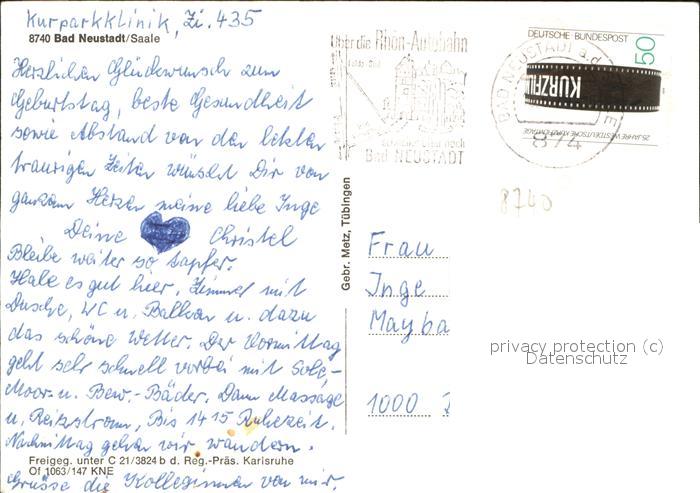 Kurparkklinik, Zi. 435
8740 Bad Neustadt/Saale
Herzlichen Glückwunsch zum
Geburtstag, beste Gesundheit
sowie Abstand von den letzten
traurigen Zeiten wünscht Dir von
ganzem Herzen meine liebe Inge
Deine Christel
Bleibe weiter so tapfer.
Habe es gut hier, Zimmer mit
Dusche, WC u. Balkon u. dazu
das schöne Wetter. Der Vormittag
geht sehr schnell vorbei mit Sole,-
Moor- u. Bew.-Bäder. Dann Massage
u. Reizstrom, Bis 14 15 Ruhezeit.
Nachmittag gehen wir wandern.
Freigeg. unter C 21/3824 b d. Reg.-Präs. Karlsruhe
Of 1063/147 KNE
Grüsse die Kolleginnen von mir.
Gebr. Metz, Tübingen
Über die Rhön-Autobahn
nach
Bad NEUSTADT
BAD NEUSTADT a.d.
874
DEUTSCHE BUNDESPOST
50
KURZFILM
25 JAHRE WESTDEUTSCHE KURZFILMTAGE
8740
Frau
Inge
Mayba
1000
privacy protection (c)
Datenschutz